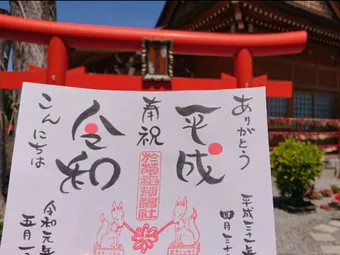 ありがとう
平成
平成三十一年
四月三十
奉祝
令和
こんにちは
令和元年
五月一